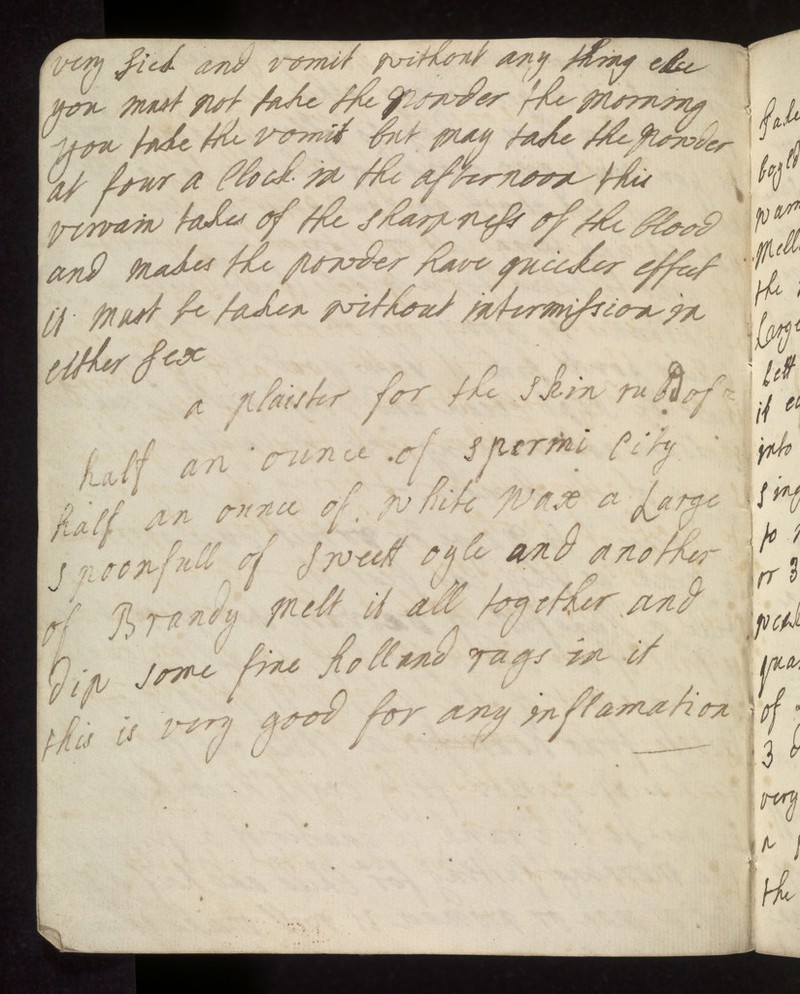 very sick and vomit without any thing else
you must not take the powder the morning
you take the vomit but may take the powder
at four a Clock in the afternoon this
vervain takes of the sharpness of the blood
and makes the powder have quicker effect
it must be taken without intermission in
either sex
a plaister for the skin rubd of
half an ounce of spermi City
half an ounce of white wax a Large
spoonfull of sweett oyle and another
of Brandy melt it all together and
dip some fine holland rags in it
this is very good for any inflamation
take
boyld
warm
Mell
the
Large
bett
it
into
sing
to
or 3
week
quar
of
3
very
a
the